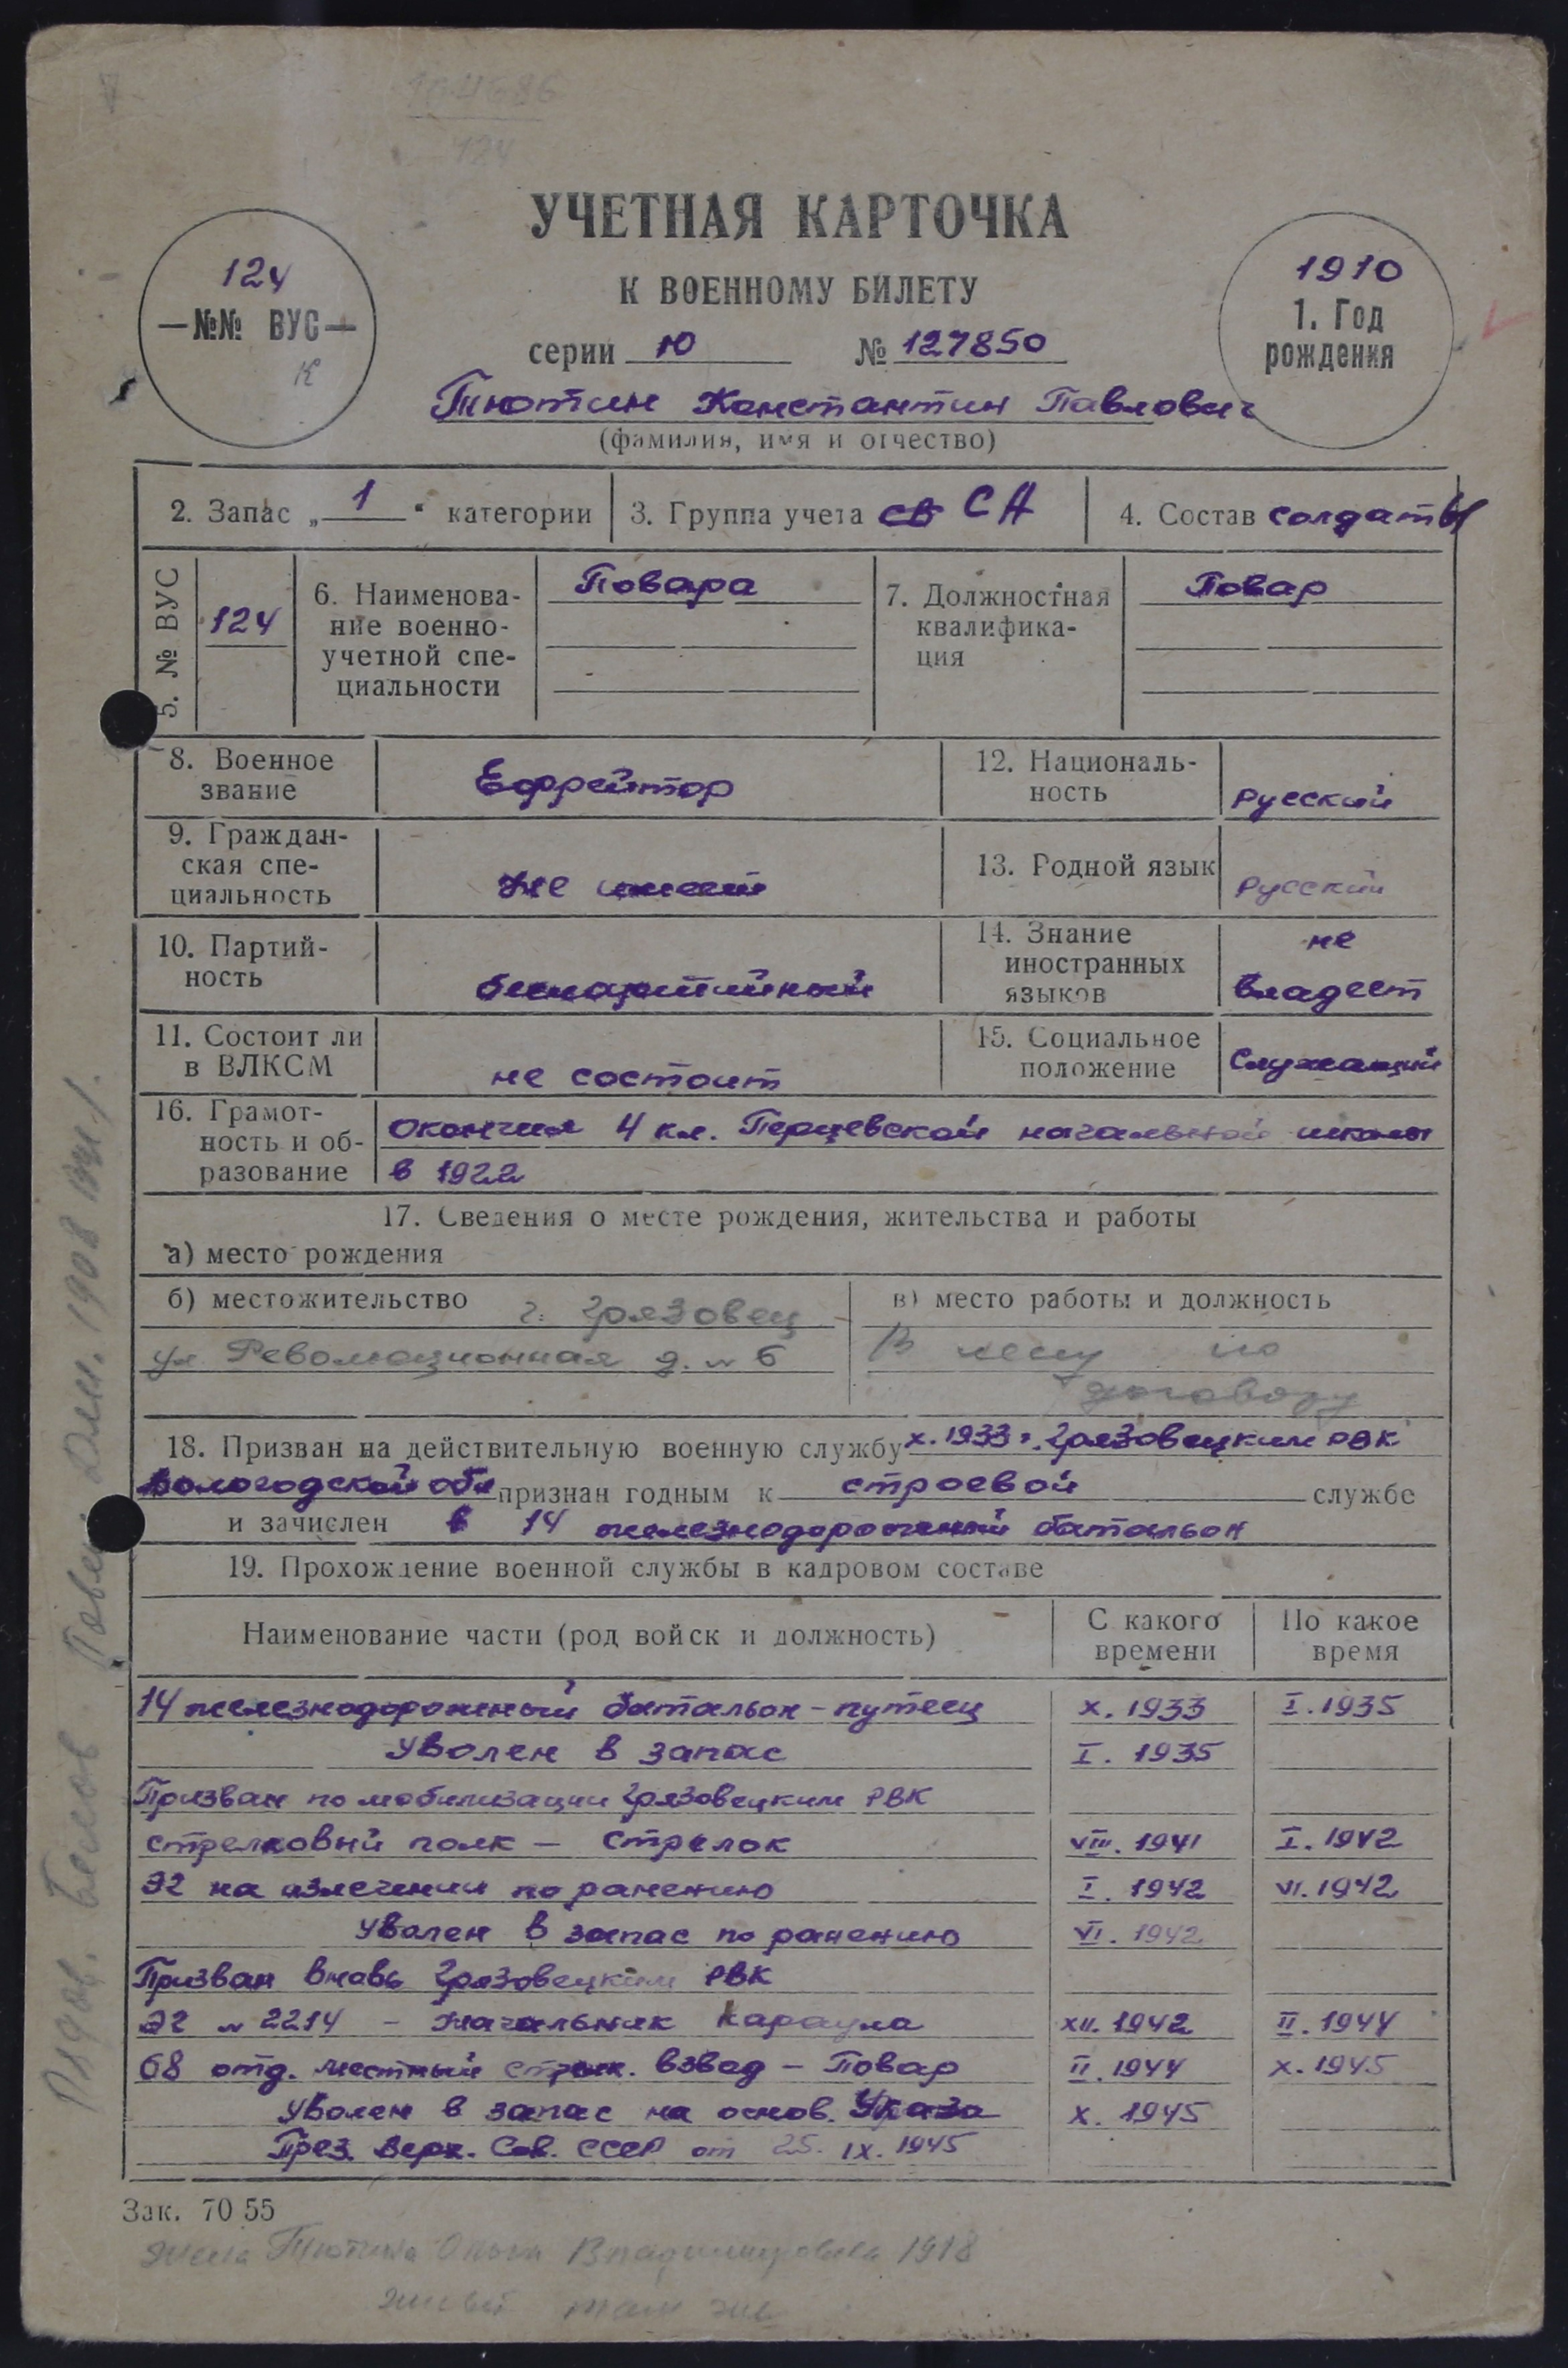 104686
124
УЧЕТНАЯ КАРТОЧКА
К ВОЕННОМУ БИЛЕТУ
серии Ю № 127850
124
—№№ ВУС—
К
1910
1. Год
рождения
Тютин Константин Павлович
(фамилия, имя и отчество)
2. Запас „ 1 “ категории
3. Группа учета св СА
4. Состав солдаты
5. № ВУС
124
6. Наименова-
ние военно-
учетной спе-
циальности
Повара
7. Должностная
квалифика-
ция
Повар
8. Военное
звание
Ефрейтор
12. Националь-
ность
русский
9. Граждан-
ская спе-
циальность
не имеет
13. Родной язык
русский
10. Партий-
ность
беспартийный
14. Знание
иностранных
языков
не
владеет
11. Состоит ли
в ВЛКСМ
не состоит
15. Социальное
положение
Служащий
16. Грамот-
ность и об-
разование
окончил 4 кл. Перцевской начальной школы
в 1922
17. Сведения о месте рождения, жительства и работы
а) место рождения
б) местожительство г. Грязовец
ул. Революционная д. № 6
в) место работы и должность
В лесу по
договору
18. Призван на действительную военную службу х. 1933 г. Грязовецким РВК
Вологодской обл признан годным к строевой службе
и зачислен в 14 железнодорожный батальон
19. Прохождение военной службы в кадровом составе
Наименование части (род войск и должность)
С какого
времени
По какое
время
14 железнодорожный батальон - путеец X. 1933 I. 1935
Уволен в запас I. 1935
Призван по мобилизации Грязовецким РВК
стрелковый полк - стрелок VIII. 1941 I. 1942
ЭГ на излечении по ранению I. 1942 VI. 1942
Уволен в запас по ранению VI. 1942
Призван вновь Грязовецким РВК
ЭГ № 2214 - Начальник Караула XII. 1942 II. 1944
68 отд. местный стрелк. взвод - Повар II. 1944 X. 1945
Уволен в запас на основ. Указа X. 1945
През. Верх. Сов. СССР от 25. IX. 1945
Зак. 70 55
жена Тютина Ольга Владимировна 1918
живет там же
Рядов. Белов Павел 1908